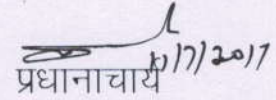 11/7/2017
प्रधानाचार्य